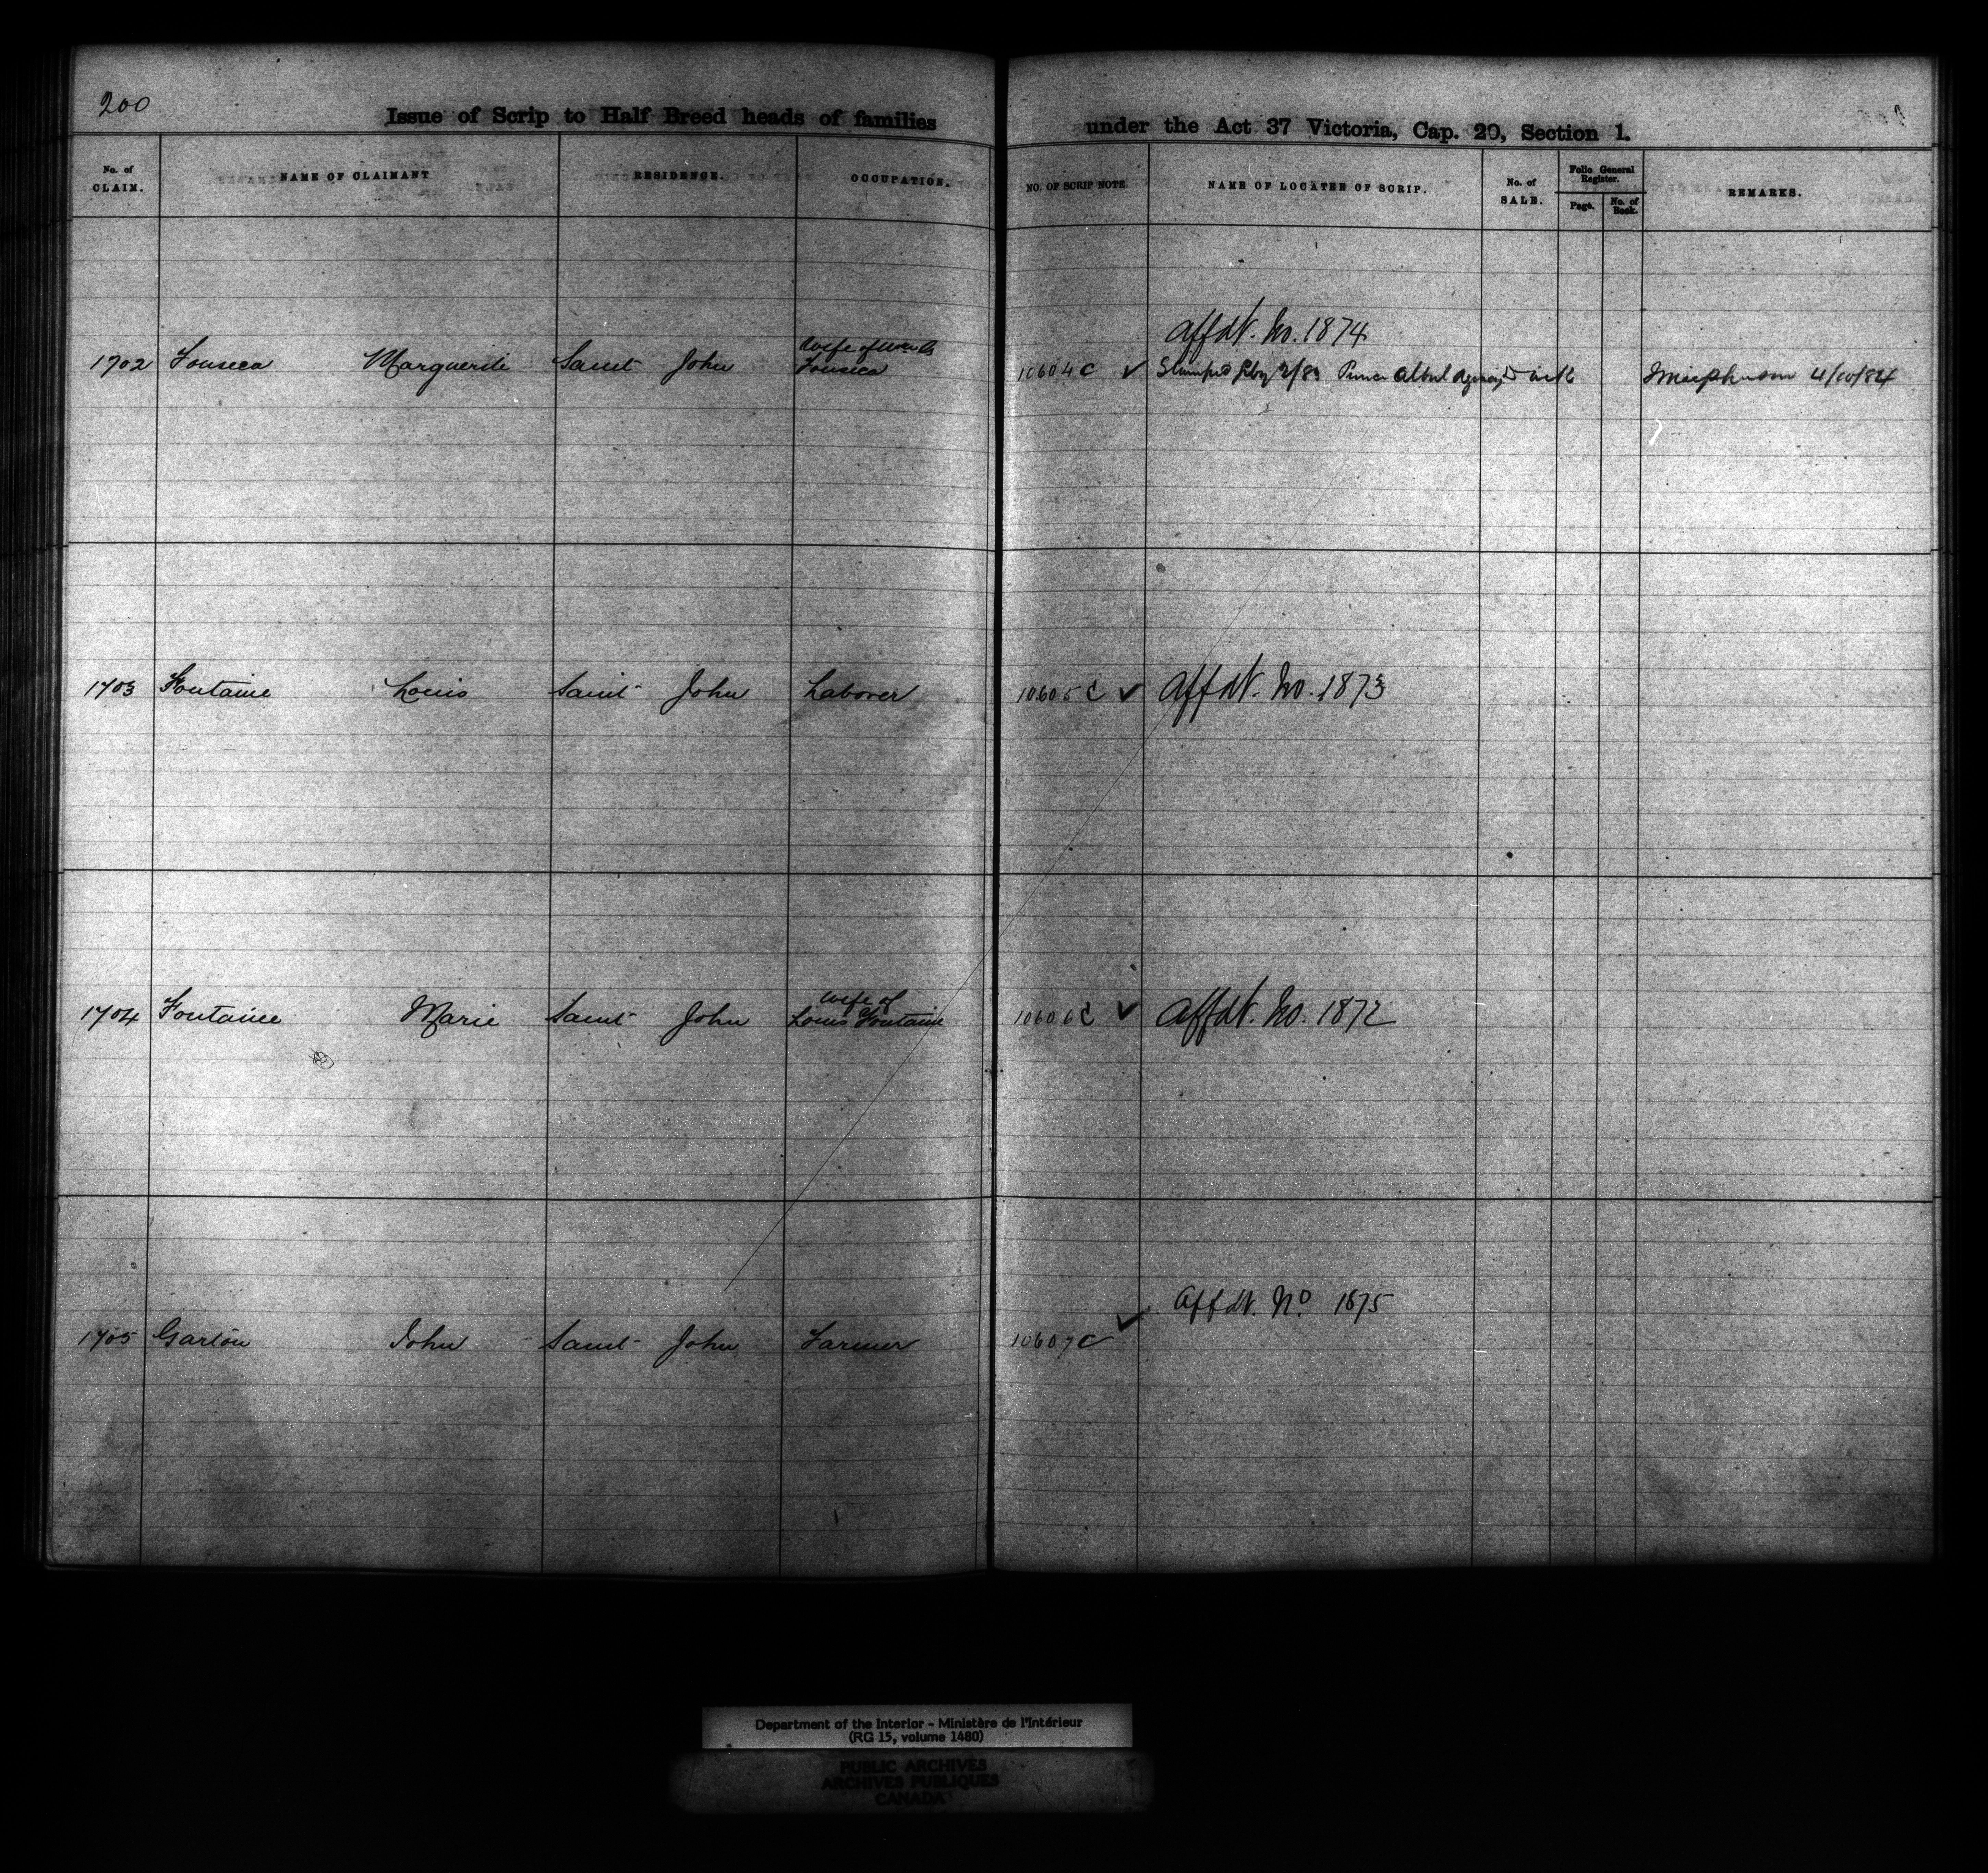 200
Issue of Scrip to Half Breed heads of families under the Act 37 Victoria, Cap. 20, Section 1.
No. of CLAIM. NAME OF CLAIMANT RESIDENCE. OCCUPATION. NO. OF SCRIP NOTE. NAME OF LOCATEE OF SCRIP. No. of SALE. Folio General Register. Page. No. of Book. REMARKS.
Affdt. No. 1874
1702 Fonseca Marguerite Saint John Wife of Fonseca 10604 C ✓ Prince Albert Agency 4/10/84
1703 Fontaine Louis Saint John Laborer 10605 C ✓ Affdt. No. 1873
1704 Fontaine Marie Saint John Wife of Louis Fontaine 10606 C ✓ Affdt. No. 1872
Affdt. No 1875
1705 Garton John Saint John Farmer 10607 C ✓
Department of the Interior - Ministère de l'Intérieur
(RG 15, volume 1480)
PUBLIC ARCHIVES
ARCHIVES PUBLIQUES
CANADA